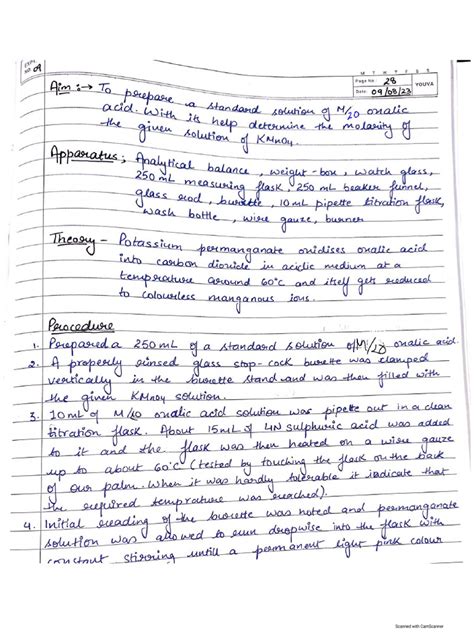 EXPt. NO 09
M T W T F S S
Page No.: 28
Date: 09/08/23
YOUVA
Aim :→ To prepare a standard solution of M/20 oxalic
acid. With its help determine the molarity of
the given solution of KMnO4.
Apparatus; Analytical balance, weight-box, watch glass,
250 mL measuring flask, 250 mL beaker funnel,
glass rod, burette, 10 mL pipette titration flask,
wash bottle, wire gauze, burner
Theory - Potassium permanganate oxidises oxalic acid
into carbon dioxide in acidic medium at a
temprature around 60°C and itself gets reduced
to colourless manganous ions.
Procedure
1. Prepared a 250 mL of a standard solution of M/20 oxalic acid.
2. A properly rinsed glass stop-cock burette was clamped
vertically in the burette stand and was then filled with
the given KMnO4 solution.
3. 10 mL of M/20 oxalic acid solution was pipette out in a clean
titration flask. About 15 mL of 4N sulphuric acid was added
to it and the flask was then heated on a wire gauze
up to about 60°C (tested by touching the flask on the back
of our palm. When it was hardly tolerable it indicate that
the required temprature was reached).
4. Initial reading of the burette was noted and permanganate
solution was allowed to run dropwise into the flask with
constant stirring untill a permanent light pink colour
Scanned with CamScanner